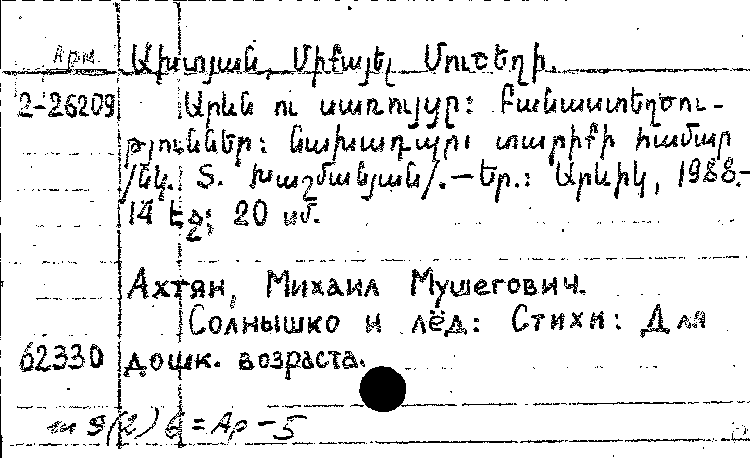 Арм. Ախտյան, Միքայել Մուշեղի.
2-26209 Արևն ու սառույցը: Բանաստեղծու-
թյուններ: Նախադպրոց. տարիքի համար
/Նկ. Տ. Խաչմանյան/.—Եր.: Արևիկ, 1988.—
14 էջ; 20 սմ.
Ахтян, Михаил Мушегович.
Солнышко и лёд: Стихи: Для
62330 дошк. возраста.
С(2) 6 = Ар - 5